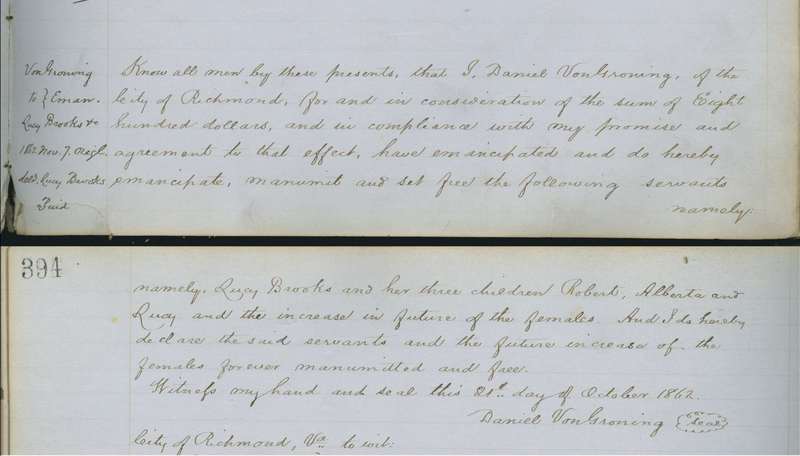 VonGroning
to } Eman.
Lucy Brooks &c
1862. Nov. 7. Origl.
deld. Lucy Brooks
Know all men by these presents, that I, Daniel VonGroning, of the
City of Richmond, for and in consideration of the sum of Eight
hundred dollars, and in compliance with my promise and
agreement to that effect, have emancipated and do hereby
emancipate, manumit and set free the following servants
namely:
394
namely. Lucy Brooks and her three children Robert, Alberta and
Lucy and the increase in future of the females. And I do hereby
declare the said servants and the future increase of the
females forever manumitted and free.
Witness my hand and seal this 21st. day of October 1862.
Daniel VonGroning {seal}
City of Richmond, Va. to wit: